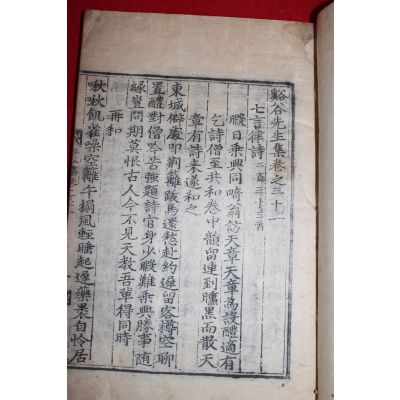 谿谷先生集卷之三十一
七言律詩 二百三十三首
暇日乘興同畸翁訪天章天章為設醴適有
乞詩僧至共和卷中韻留連到曛黑而散天
章有詩來遂和之
東城僻處叩荆籬跋馬還愁赴約遲留客樽空聊
置醴對僧吟苦強題詩官身少暇難乘興勝事随
緣豈問期莫恨古人今不見天教吾輩得同時
再和
啾啾飢雀噪空籬午搨風輕睡起遲藥褁自怜居